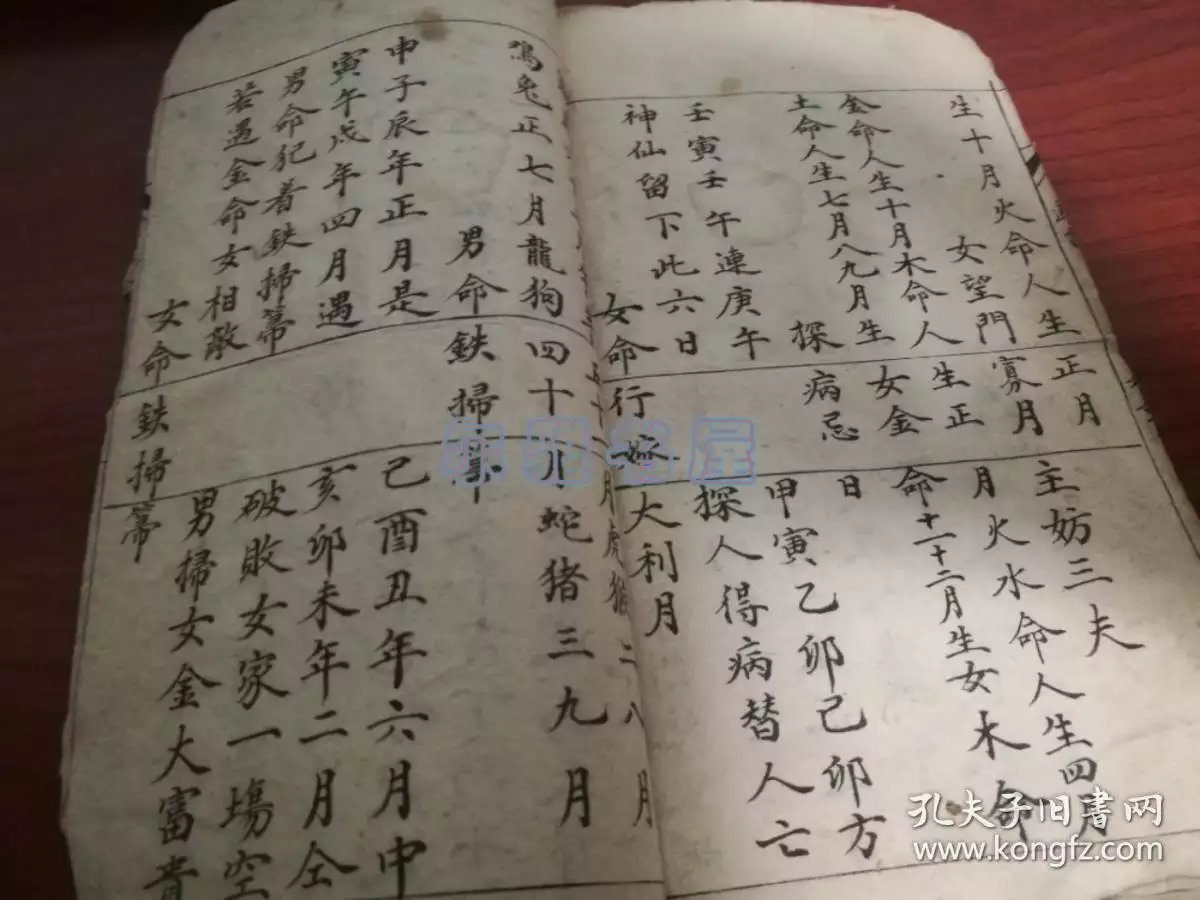 生十月火命人生正月主妨三夫
女望門寡
金命人生十月木命人生正月火水命人生四月
土命人生七月八九月生女金命十一十二月生女木命
探病忌日
壬寅壬午連庚午甲寅乙卯己卯方
神仙留下此六日探人得病替人亡
女命行嫁大利月
月虎猴二八月
鳮兔正七月龍狗四十月蛇猪三九月
男命鉄掃箒
申子辰年正月是己酉丑年六月中
寅午戌年四月遇亥卯未年二月仝
男命犯着鉄掃箒破敗女家一塲空
若遇金命女相敵男掃女金大富貴
女命鉄掃箒
孔夫子旧书网
www.kongfz.com